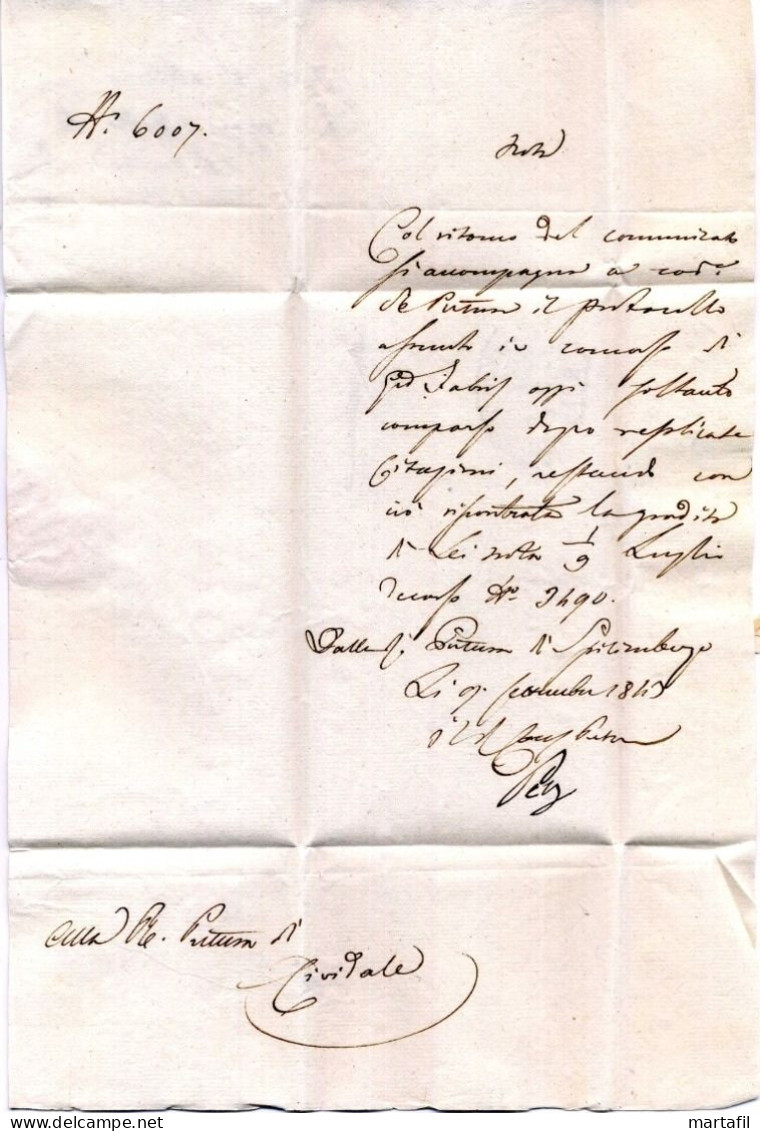 N.° 6007.
Nota
Col ritorno del comunicato
si accompagna a cod.ª
R. Pretura il protocollo
assunto in concorso di
Fabris oggi soltanto
comparso dopo replicate
Citazioni, restando con
ciò riscontrata la gradita
di Lei nota 1/9 Luglio
decorso N.° 3490.
Dalla R. Pretura di Spilimbergo
Li 9. Settembre 1843
Alla R. Pretura di
Cividale
martafil